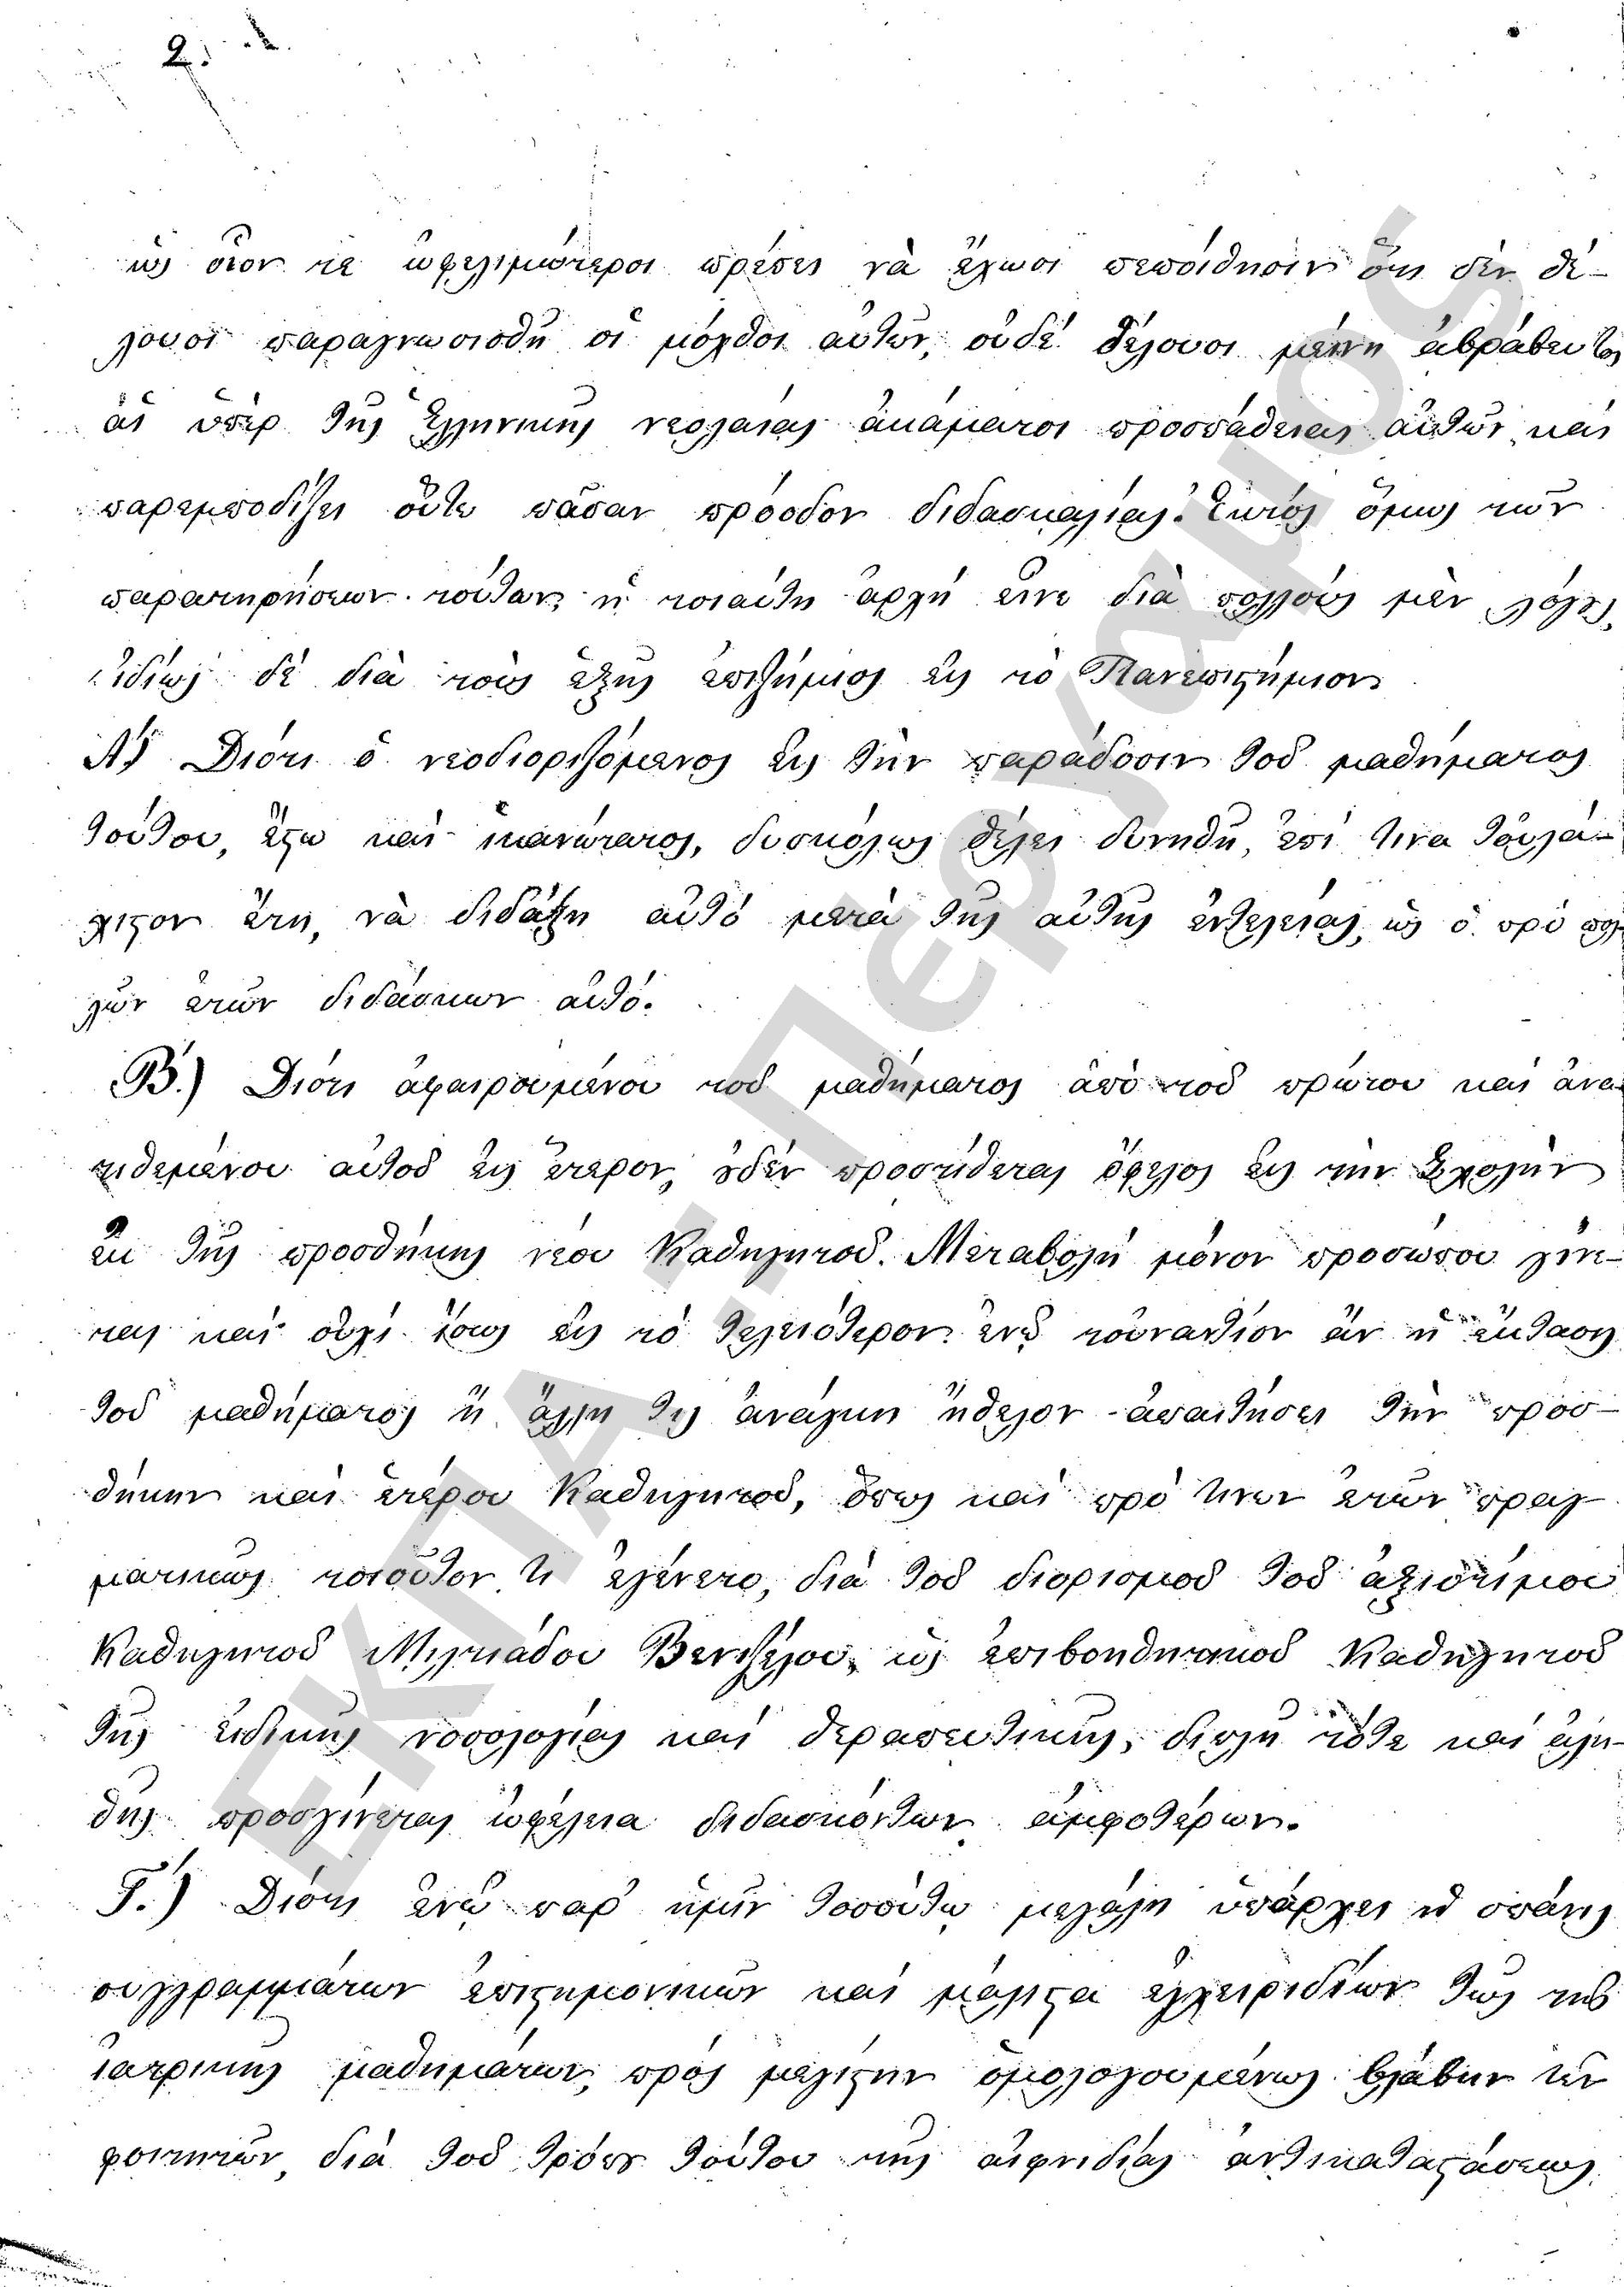 2.
ὡς οἷον τε ὠφελιμώτεροι πρέπει νὰ ἔχωσι πεποίθησιν ὅτι δὲν θέ-
λουσι παραγνωρισθῆ οἱ μόχθοι αὐτῶν, οὐδὲ θέλουσι μένει ἀβράβευτοι
αἱ ὑπὲρ τῆς Ἑλληνικῆς νεολαίας ἀκάματοι προσπάθειαι αὐτῶν, καὶ
παρεμποδίζει οὕτω πᾶσαν πρόοδον διδασκαλίας. Ἐκτὸς ὅμως τῶν
παρατηρήσεων τούτων, ἡ τοιαύτη ἀρχὴ εἶνε διὰ πολλοὺς μὲν λόγους,
ἰδίως δὲ διὰ τοὺς ἑξῆς ἐπιζήμιος εἰς τὸ Πανεπιστήμιον.
Α.) Διότι ὁ νεοδιοριζόμενος εἰς τὴν παράδοσιν τοῦ μαθήματος
τούτου, ἔστω καὶ ἱκανώτατος, δυσκόλως θέλει δυνηθῆ, ἐπί τινα τοὐλά-
χιστον ἔτη, νὰ διδάξῃ αὐτὸ μετὰ τῆς αὐτῆς ἐντελείας, ὡς ὁ πρὸ πολ-
λῶν ἐτῶν διδάσκων αὐτό.
Β.) Διότι ἀφαιρουμένου τοῦ μαθήματος ἀπὸ τοῦ πρώτου καὶ ἀνα-
τιθεμένου αὐτοῦ εἰς ἕτερον, οὐδὲν προστίθεται ὄφελος εἰς τὴν Σχολὴν
ἐκ τῆς προσθήκης νέου Καθηγητοῦ. Μεταβολὴ μόνον προσώπου γίνε-
ται καὶ οὐχὶ ἴσως εἰς τὸ τελειότερον· ἐνῷ τοὐναντίον ἂν ἡ ἔκτασις
τοῦ μαθήματος ἢ ἄλλη τις ἀνάγκη ἤθελον ἀπαιτήσει τὴν προσ-
θήκην καὶ ἑτέρου Καθηγητοῦ, ὅπως καὶ πρό τινων ἐτῶν πραγ-
ματικῶς τοιοῦτόν τι ἐγένετο, διὰ τοῦ διορισμοῦ τοῦ ἀξιοτίμου
Καθηγητοῦ Μιλτιάδου Βενιζέλου, ὡς ἐπιβοηθητικοῦ Καθηγητοῦ
τῆς εἰδικῆς νοσολογίας καὶ θεραπευτικῆς, διπλῆ τότε καὶ ἀλη-
θὴς προσγίνεται ὠφέλεια διδασκόντων ἀμφοτέρων.
Γ.) Διότι ἐνῷ παρ' ἡμῖν τοσούτῳ μεγάλη ὑπάρχει ἡ σπάνις
συγγραμμάτων ἐπιστημονικῶν καὶ μάλιστα ἐγχειριδίων τῶν τῆς
ἰατρικῆς μαθημάτων, πρὸς μεγίστην ὁμολογουμένως βλάβην τῶν
φοιτητῶν, διὰ τοῦ τρόπου τούτου τῆς αἰφνιδίας ἀντικαταστάσεως
ΕΚΠΑ - Περγαμος